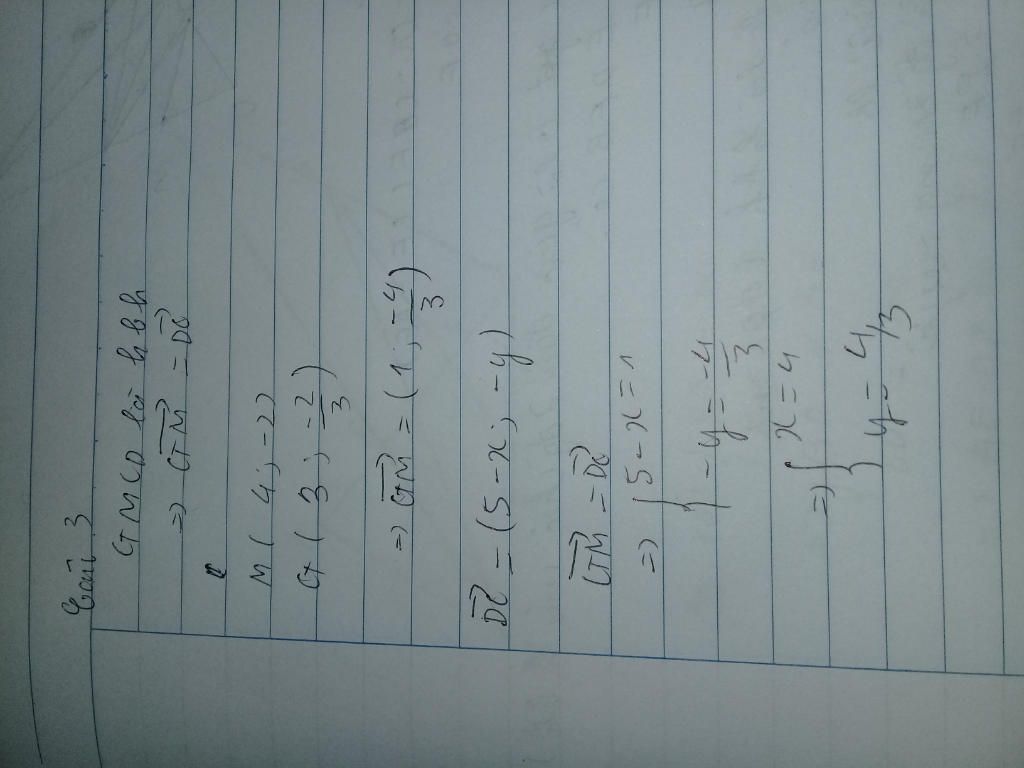 Bài 3
GMCD là hbh
=> GM = DC
M ( 4 ; -2)
G ( 3 ; -2/3 )
=> GM = (1 ; -4/3)
DC = (5-x ; -y)
GM = DC
=> { 5-x = 1
{ -y = -4/3
=> { x = 4
{ y = 4/3